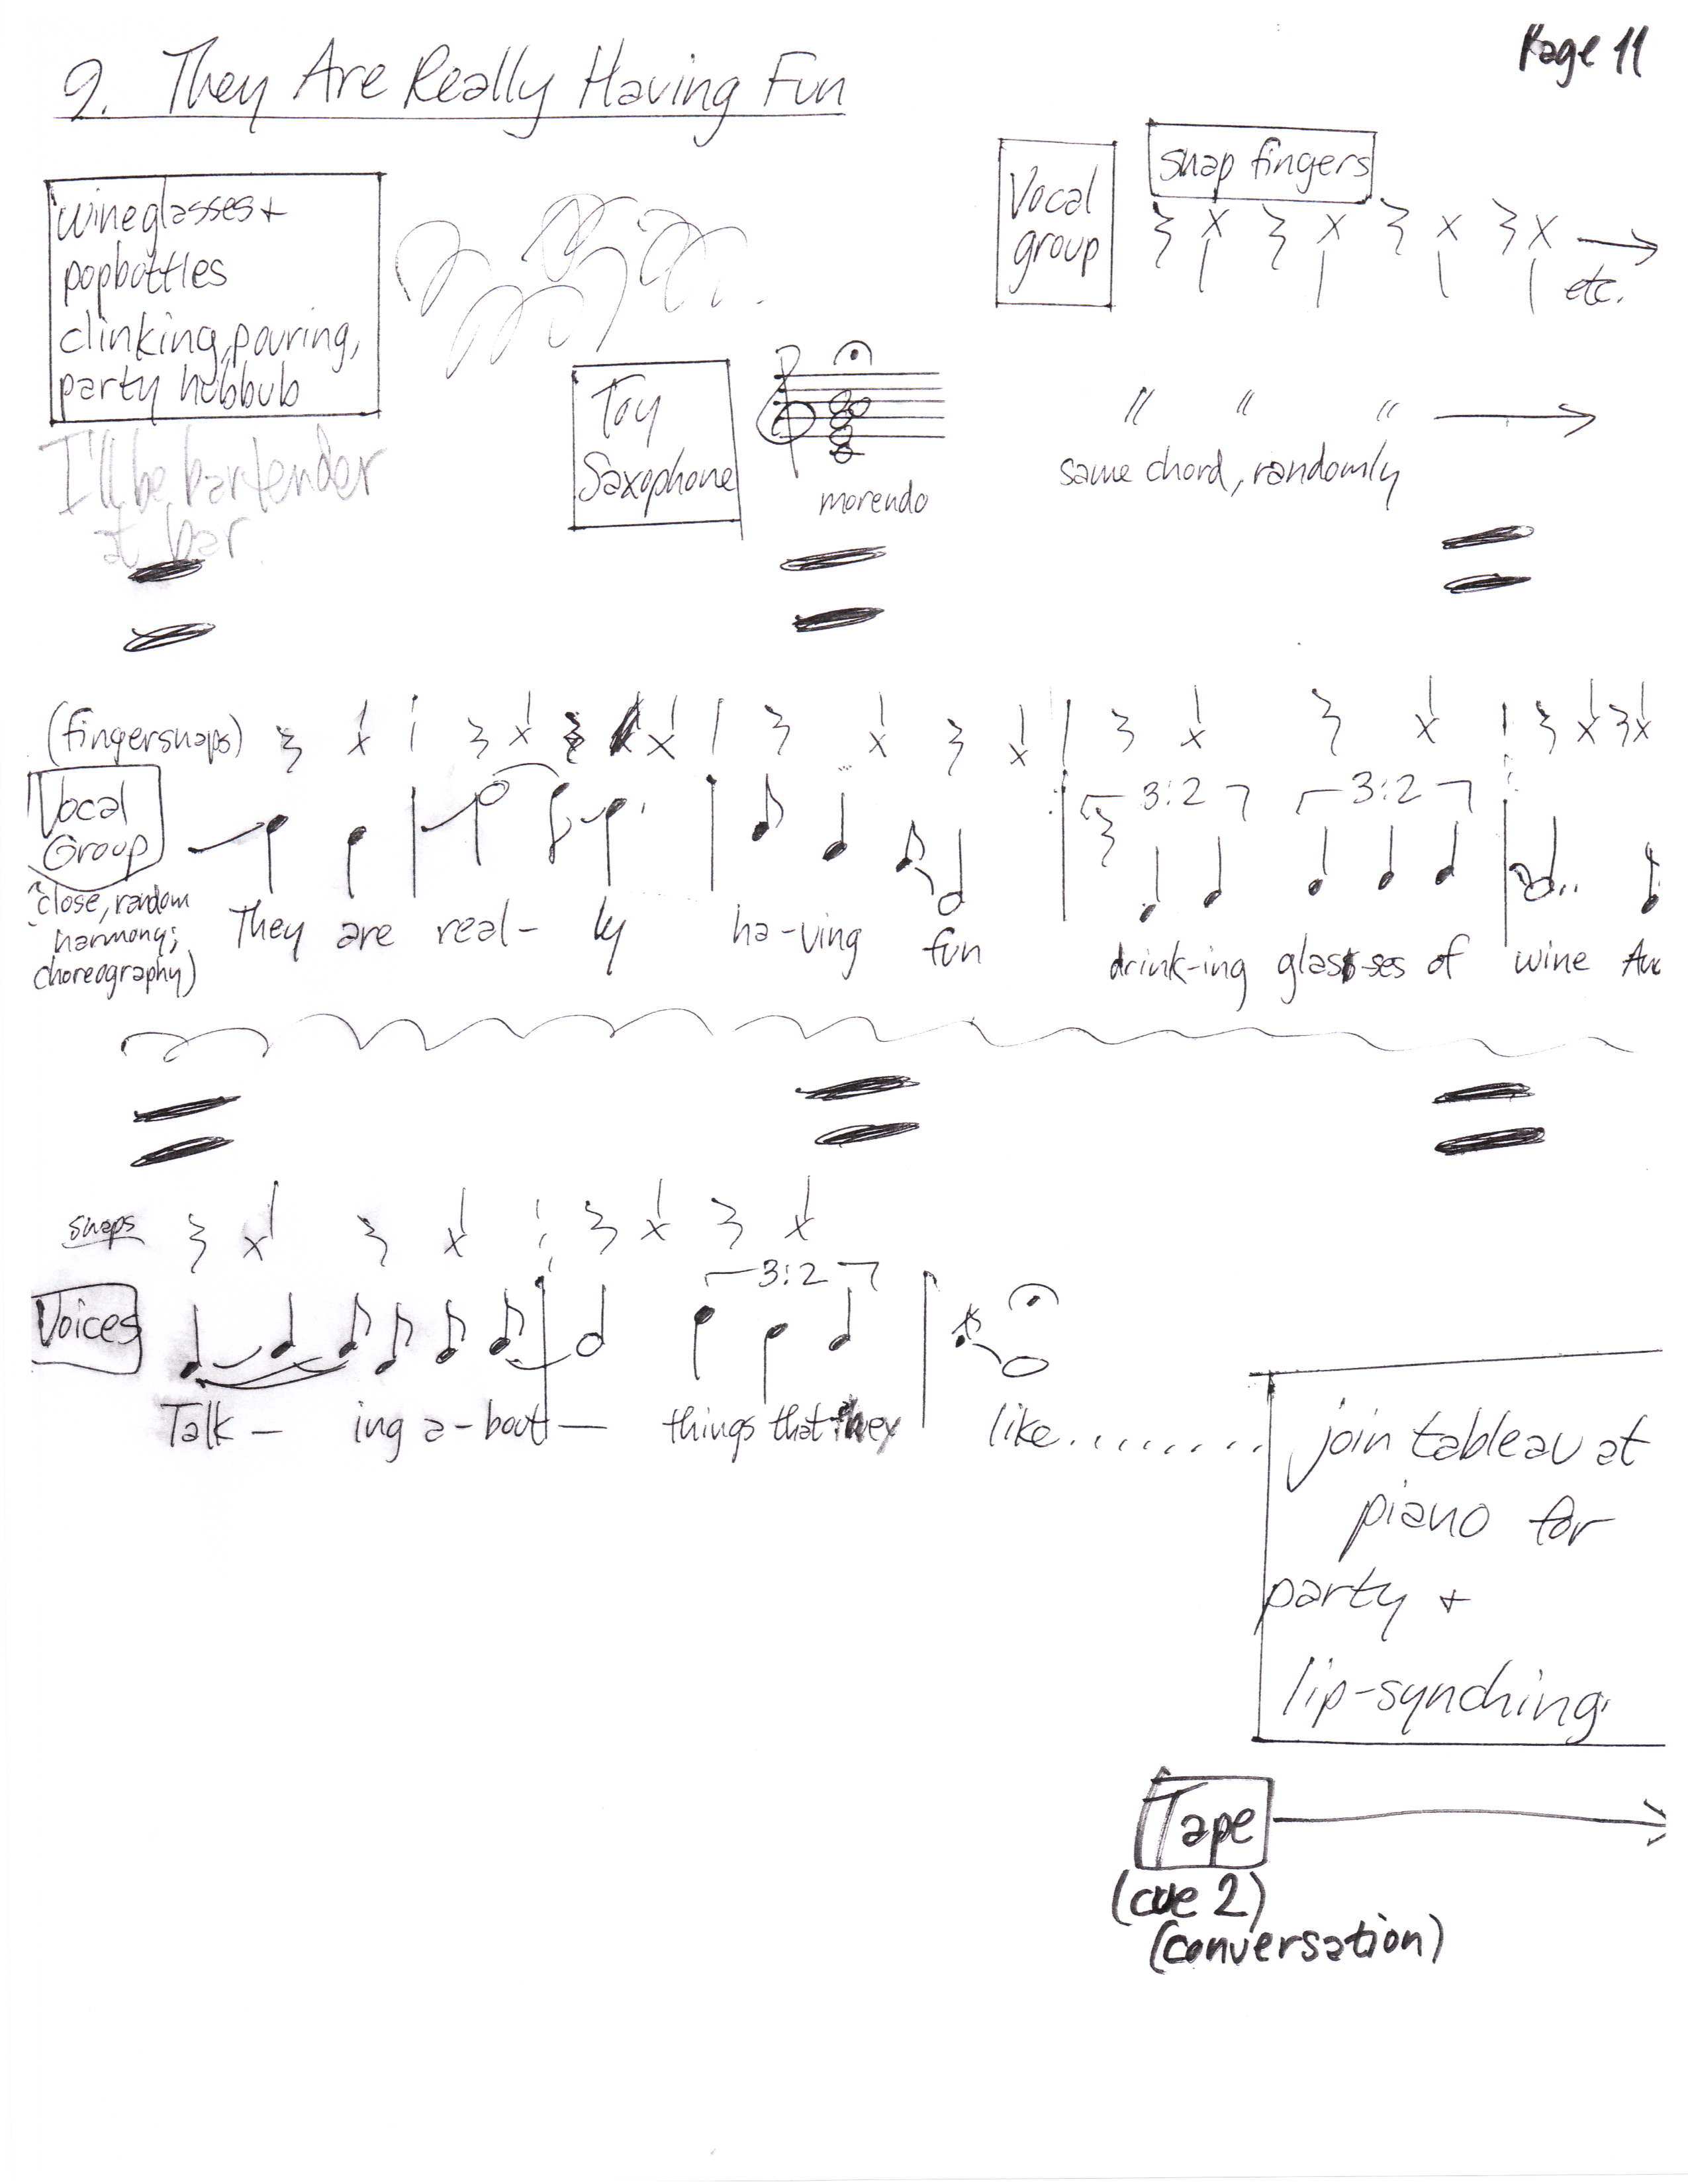 Page 11
9. They Are Really Having Fun
wineglasses +
popbottles
clinking, pouring,
party hubbub
I'll be bartender
at bar
Vocal
group
snap fingers
etc.
Toy
Saxophone
morendo
" " "
same chord, randomly
(fingersnaps)
Vocal
Group
(close, random
harmony;
choreography)
3:2 3:2
They are real- ly ha-ving fun drink-ing glas-ses of wine
snaps
3:2
Voices
Talk - ing a-bout - things that they like........
join tableau at
piano for
party +
lip-synching
Tape
(cue 2)
(conversation)